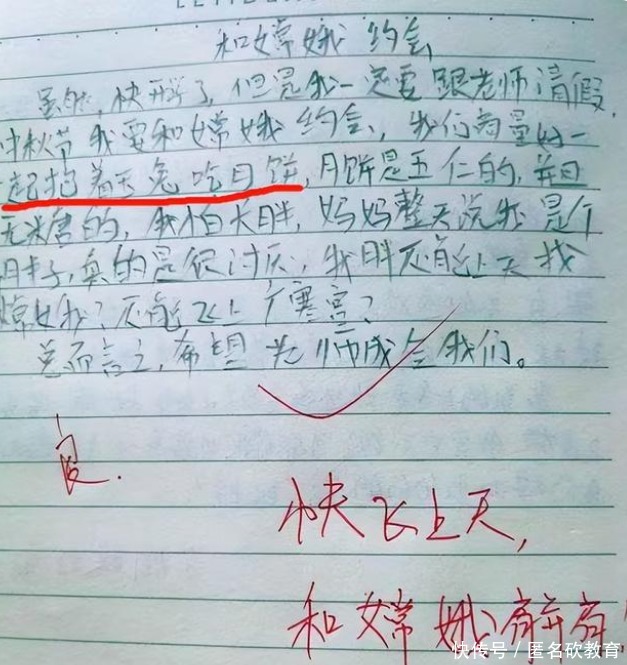 和嫦娥约会
虽然,快开学了,但是我一定要跟老师请假,
中秋节我要和嫦娥约会,我们商量好一
起抱着玉兔吃月饼,月饼是五仁的,并且
无糖的,我怕长胖,妈妈整天说我是个
胖子,真的是很讨厌,我胖还能上天找
嫦娥?还能飞上广寒宫?
总而言之,希望老师成全我们。
良.
快飞上天,
和嫦娥
快传号/匿名砍教育